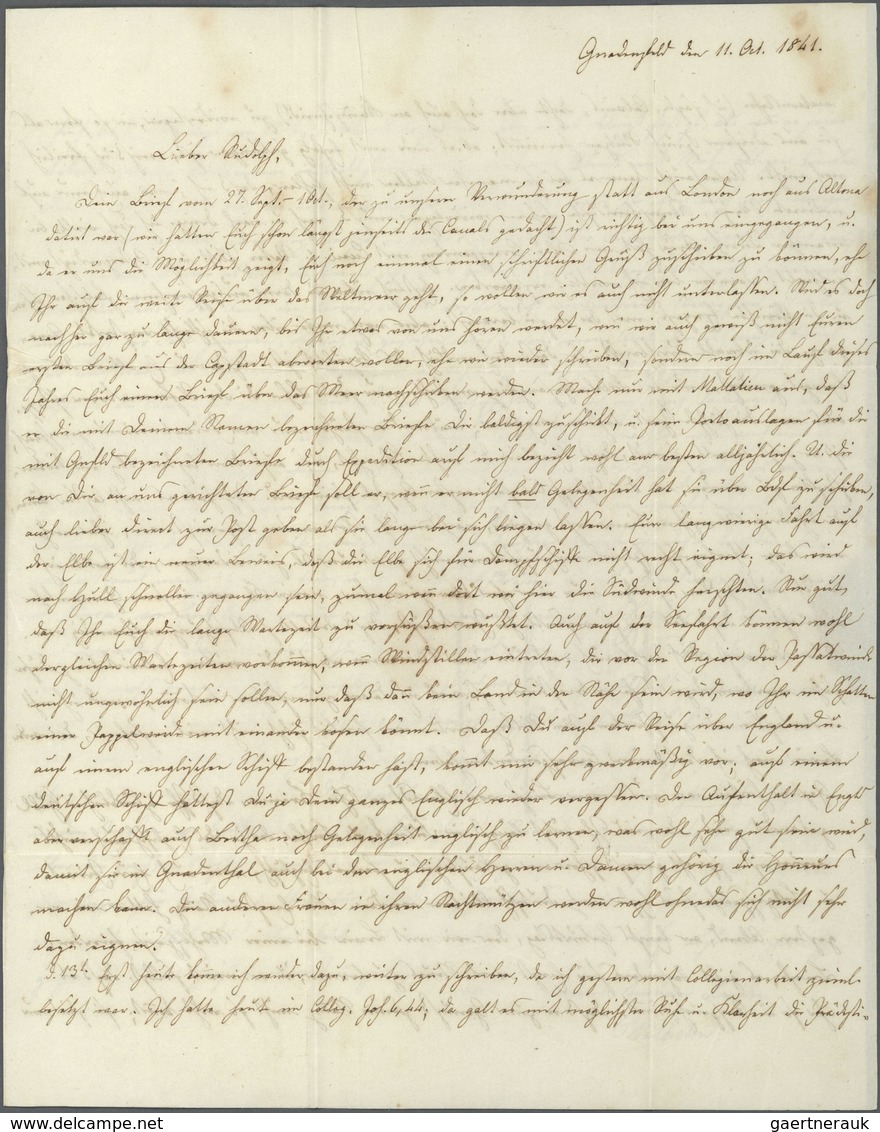 Gnadenfeld den 11. Oct. 1841.
Lieber Rudolph,
Dein Brief vom 27. Sept. – 1 Oct., der zu unsrer Verwunderung statt aus London noch aus Altona
datirt war (wir hatten Euch schon längst jenseits des Canals gedacht) ist richtig bei uns eingegangen, u.
da er uns die Möglichkeit zeigt, Euch noch einmal einen schriftlichen Gruß zuzuschicken zu können, ehe
Ihr auf die weite Reise über das Weltmeer geht, so wollen wir es auch nicht unterlassen. Wird es doch
nachher gar zu lange dauern, bis Ihr etwas von uns hören werdet, wenn wir auch gewiß nicht Euren
ersten Brief aus der Capstadt abwarten wollen, ehe wir wieder schreiben, sondern noch im Lauf dieses
Jahres Euch einen Brief über das Meer nachschicken werden. Mache nur mit Mallalieu aus, daß
er die mit Deinem Namen bezeichneten Briefe Dir baldigst zuschickt, u. sein Portoauslagen für die
mit Gnfld bezeichneten Briefe durch Expedition auf mich bezieht wohl am besten alljährlich. U. die
von Dir an uns gerichteten Briefe soll er, wenn er nicht bald Gelegenheit hat sie über Bdf zu schicken,
auch lieber direct zur Post geben als sie lange bei sich liegen lassen. Eure langwierige Fahrt auf
der Elbe ist ein neuer Beweis, daß die Elbe sich für Dampfschiffe nicht recht eignet; das wird
nach Hull schneller gegangen sein, zumal wenn dort wie hier die Südwinde herrschten. Nur gut,
daß Ihr Euch die lange Wartezeit zu versüßen wußtet. Auch auf der Seefahrt können wohl
dergleichen Wartezeiten vorkommen, wenn Windstillen eintreten, die vor der Region der Passatwinde
nicht ungewöhnlich sein sollen, nur daß dann kein Land in der Nähe sein wird, wo Ihr im Schatten
einer Pappelweide mit einander kosen könnt. Daß Du auf der Reise über England u.
auf einem englischen Schiff bestanden hast, kommt mir sehr zweckmäßig vor; auf einem
deutschen Schiff hättest Du ja Dein ganzes Englisch wieder vergessen. Der Aufenthalt in Engld
aber verschafft auch Bertha noch Gelegenheit englisch zu lernen, was wohl sehr gut sein wird,
damit sie in Gnadenthal auch bei den englischen Herren u. Damen gehörig die Honneurs
machen kann. Die anderen Frauen in ihren Nachtmützen werden wohl ohnedas sich nicht sehr
dazu eignen.
d. 13t. Erst heute komme ich wieder dazu, weiter zu schreiben, da ich gestern mit Collegienarbeit zieml.
besetzt war. Ich hatte heut im Colleg. Joh. 6, 44; da galt es mit möglichster Ruhe u. Klarheit die Prädesti-
gaertnerauk
www.delcampe.net